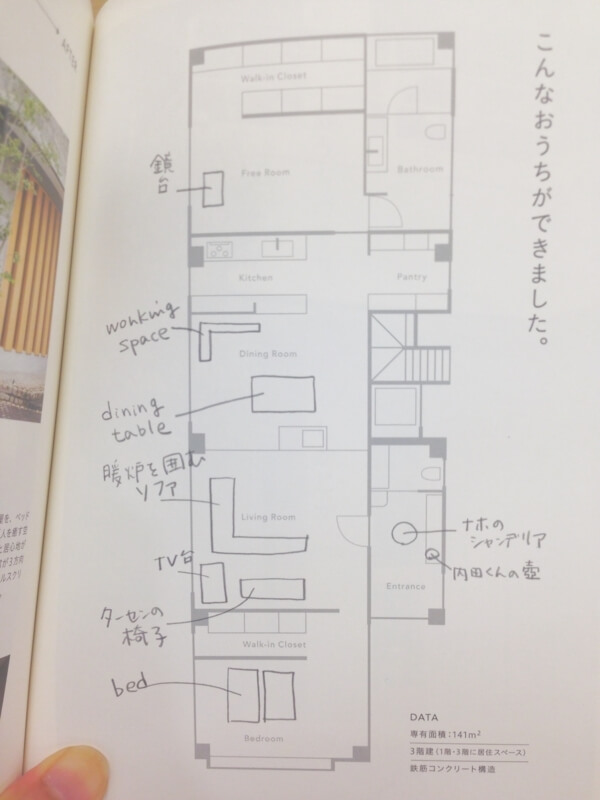 AFTER
こんなおうちができました。
Walk-in Closet
鏡台
Free Room
Bathroom
Kitchen
Pantry
working
space
Dining Room
dining
table
暖炉を囲む
ソファ
Living Room
TV台
ナホの
シャンデリア
内田くんの壺
Entrance
ターセンの
椅子
Walk-in Closet
bed
Bedroom
DATA
専有面積：141m²
3階建（1階・3階に居住スペース）
鉄筋コンクリート構造